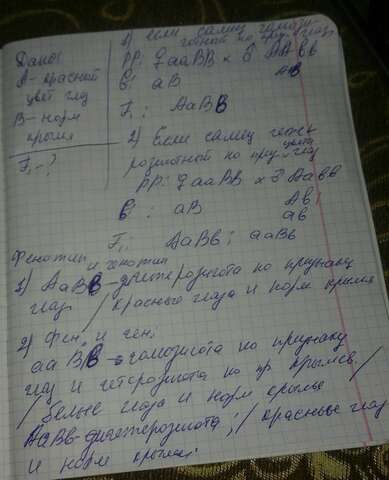 Дано:
А - красный
цвет глаз
В - норм
крылья
F₁ - ?
1) если самец гомози-
готный по пр. глаз
РР: ♀ aaBB × ♂ AAbb
G: aB Ab
F₁: AaBb
2) Если самец гете-
розиготной по пр. цвета глаз
PP: ♀ aaBB × ♂ Aabb
G: aB Ab;
ab
F₁: AaBb; aaBb
Фенотип и генотип
1) AaBb - дигетерозигота по признаку
глаз / красные глаза и норм крылья
2) Фен. и ген:
aaBb - гомозигота по признаку
глаз и гетерозигота по пр. крыльев
/ белые глаза и норм крылья /
AaBb - дигетерозигота; / красные глаз
и норм крылья;